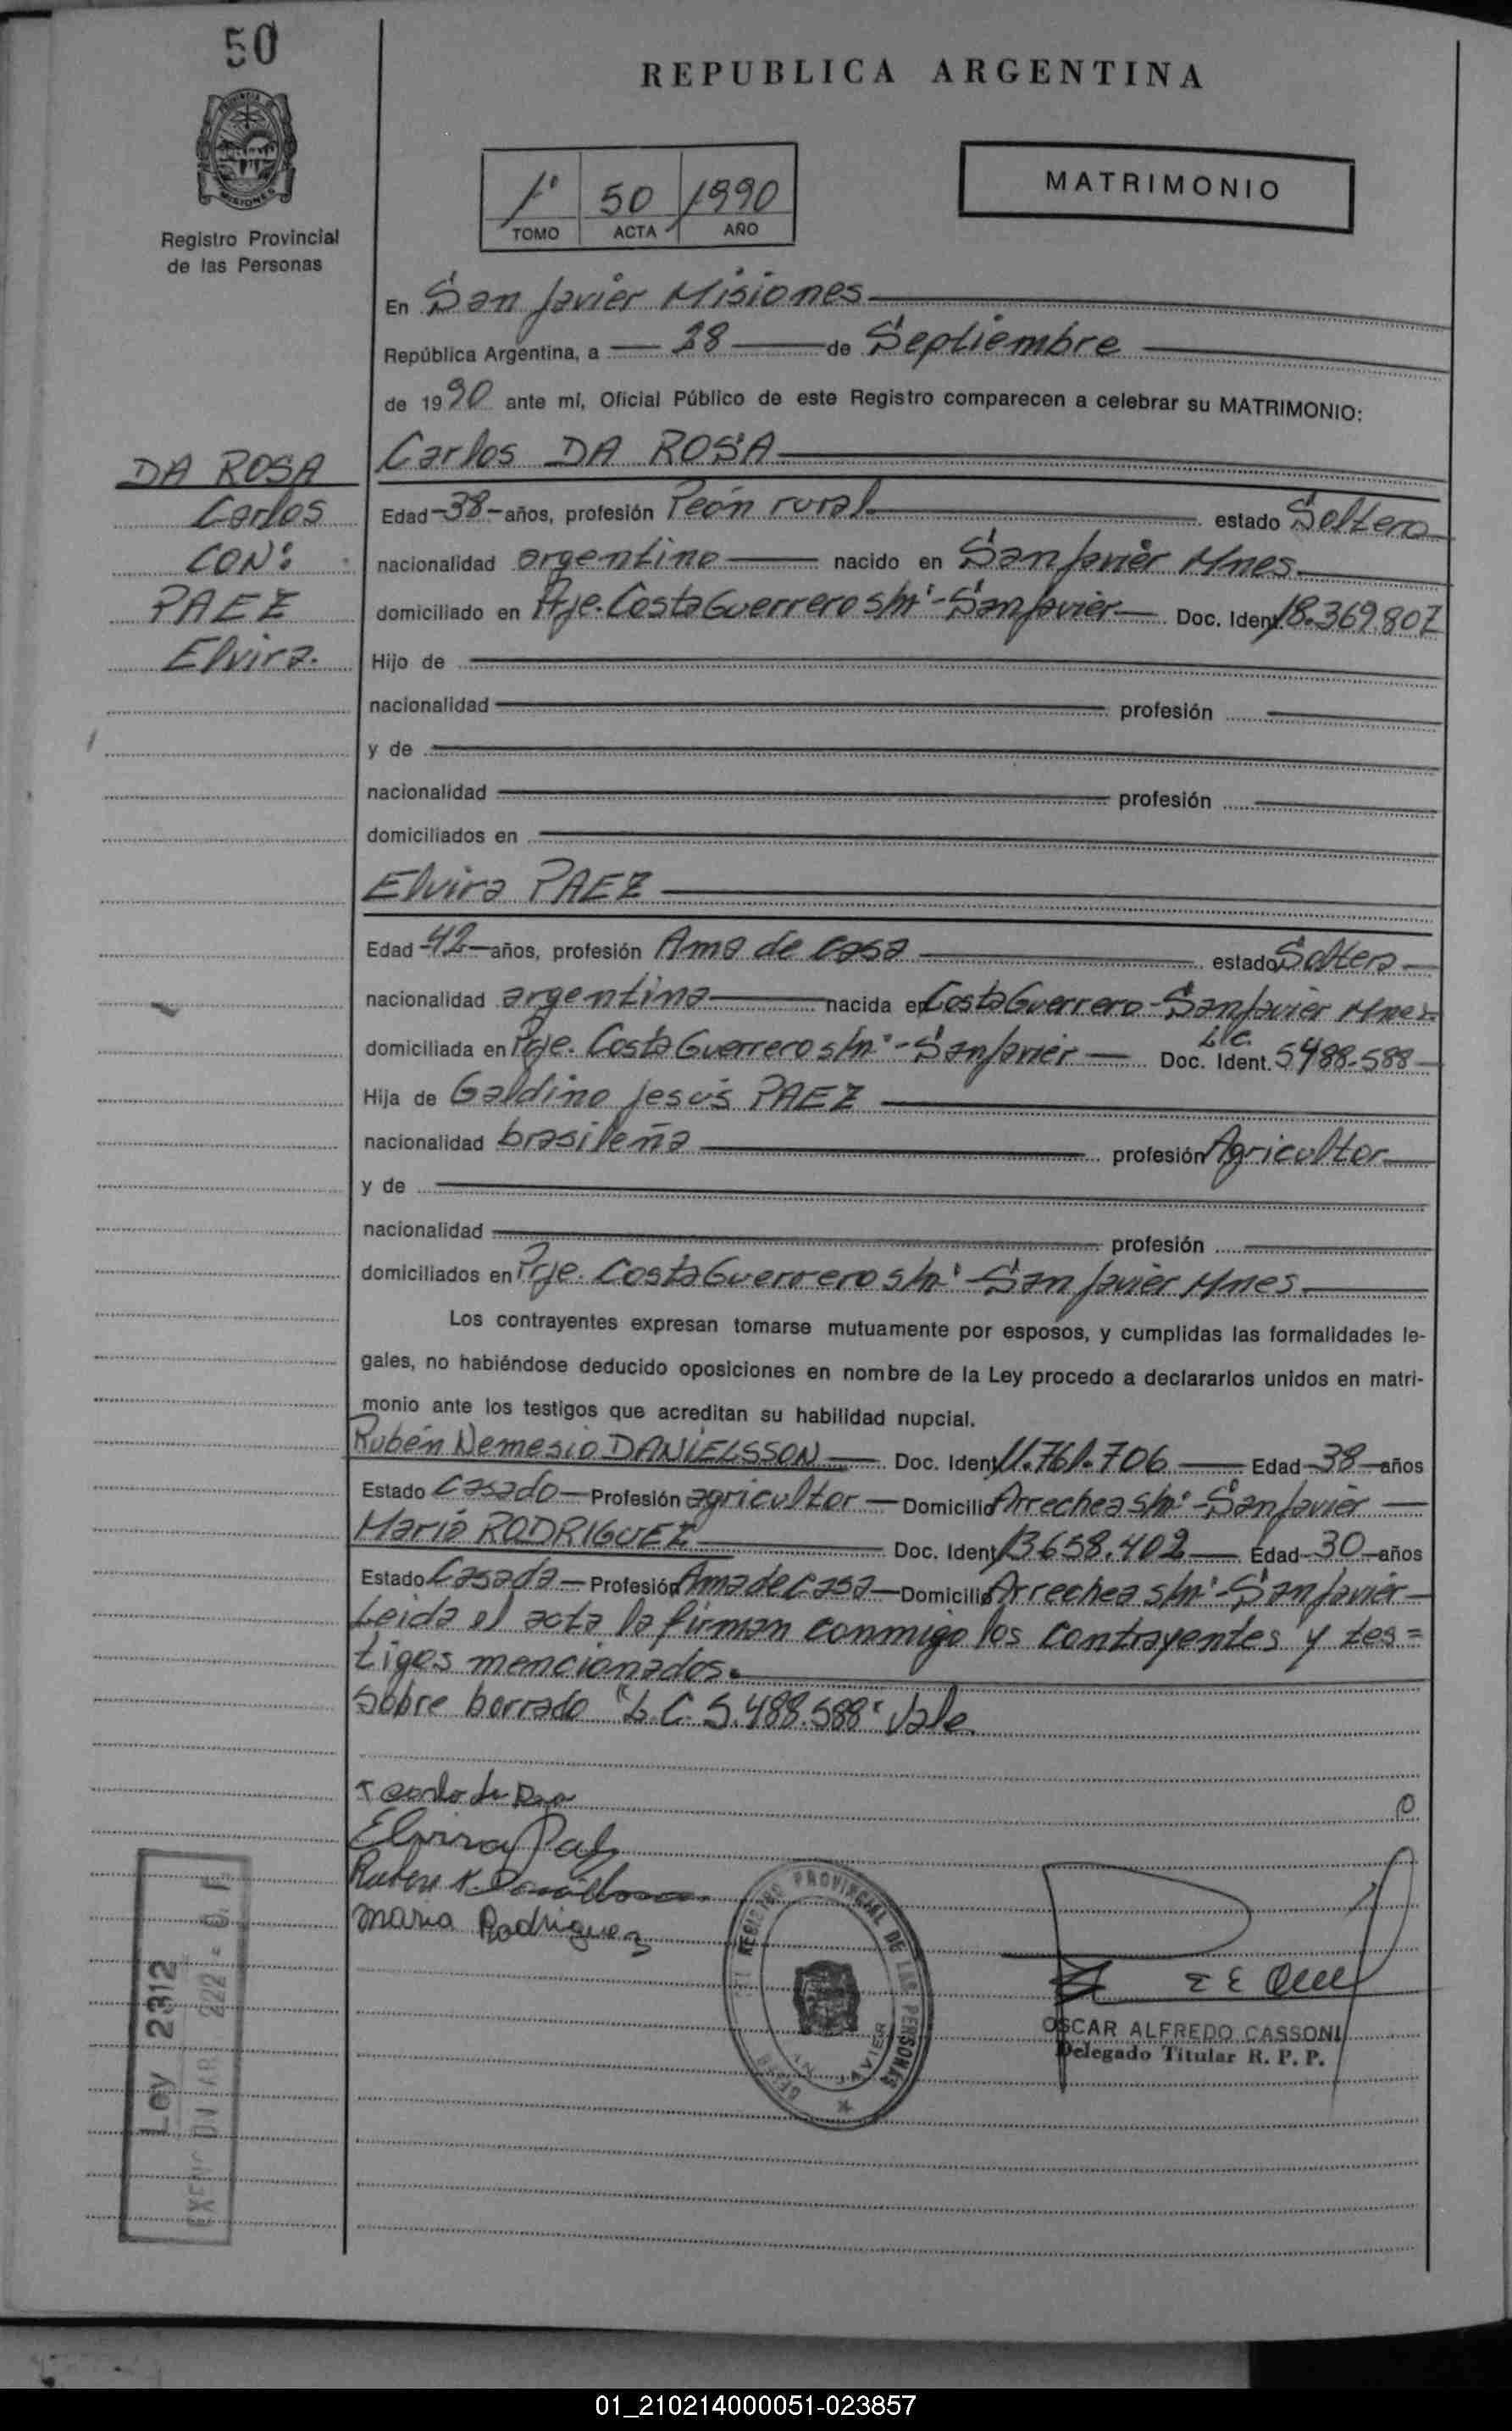 50
REPUBLICA ARGENTINA
PROVINCIA DE MISIONES
Registro Provincial
de las Personas
MATRIMONIO
1° 50 1990
TOMO ACTA AÑO
En San Javier Misiones
República Argentina, a 28 de Septiembre
de 1990 ante mí, Oficial Público de este Registro comparecen a celebrar su MATRIMONIO:
DA ROSA
Carlos
CON:
PAEZ
Elvira.
Carlos DA ROSA
Edad -38- años, profesión Peón rural estado Soltero
nacionalidad argentino nacido en San Javier Mnes.
domiciliado en Pje. Costa Guerrero s/n° - San Javier Doc. Ident. 18.369.807
Hijo de
nacionalidad profesión
y de
nacionalidad profesión
domiciliados en
Elvira PAEZ
Edad 42 años, profesión Ama de casa estado Soltera
nacionalidad argentina nacida en Costa Guerrero - San Javier Mnes.
domiciliada en Pje. Costa Guerrero s/n° - San Javier Doc. Ident. L.C. 5488.588
Hija de Galdino Jesús PAEZ
nacionalidad brasileña profesión Agricultor
y de
nacionalidad profesión
domiciliados en Pje. Costa Guerrero s/n° - San Javier Mnes
Los contrayentes expresan tomarse mutuamente por esposos, y cumplidas las formalidades le-
gales, no habiéndose deducido oposiciones en nombre de la Ley procedo a declararlos unidos en matri-
monio ante los testigos que acreditan su habilidad nupcial.
Rubén Nemesio DANIELSSON Doc. Ident. 11.761.706 Edad -38- años
Estado Casado Profesión agricultor Domicilio Arrechea s/n° - San Javier
María RODRIGUEZ Doc. Ident. 13658.402 Edad -30- años
Estado Casada Profesión Ama de casa Domicilio Arrechea s/n° - San Javier
Leida el acta la firman conmigo los contrayentes y tes=
tigos mencionados.
Sobre borrado "L.C. 5.488.588" Vale
Elvira Paez
Maria Rodriguez
REGISTRO PROVINCIAL DE LAS PERSONAS
OSCAR ALFREDO CASSONI
Delegado Titular R. P. P.
Ley 2312
01_210214000051-023857